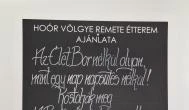 HOÓR VÖLGYE REMETE ÉTTEREM
AJÁNLATA
Az Élet Bor nélkül olyan,
mint egy nap napsütés nélkül!
Kóstolják meg